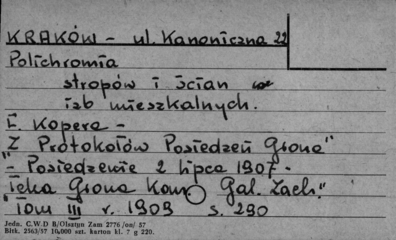 KRAKÓW - ul. Kanoniczna 22
Polichromia
stropów i ścian
izb mieszkalnych.
F. Kopera -
Z Protokołów Posiedzeń Grona"
"- Posiedzenie 2 lipca 1907.
Teka Grona Kon Gal. Zach."
"Tom III r. 1909 s. 290
Jedn. C.W.D B/Olsztyn Zam 2776/on/57
Bltk. 2563/57 10.000 szt. karton kl. 7 g 220.